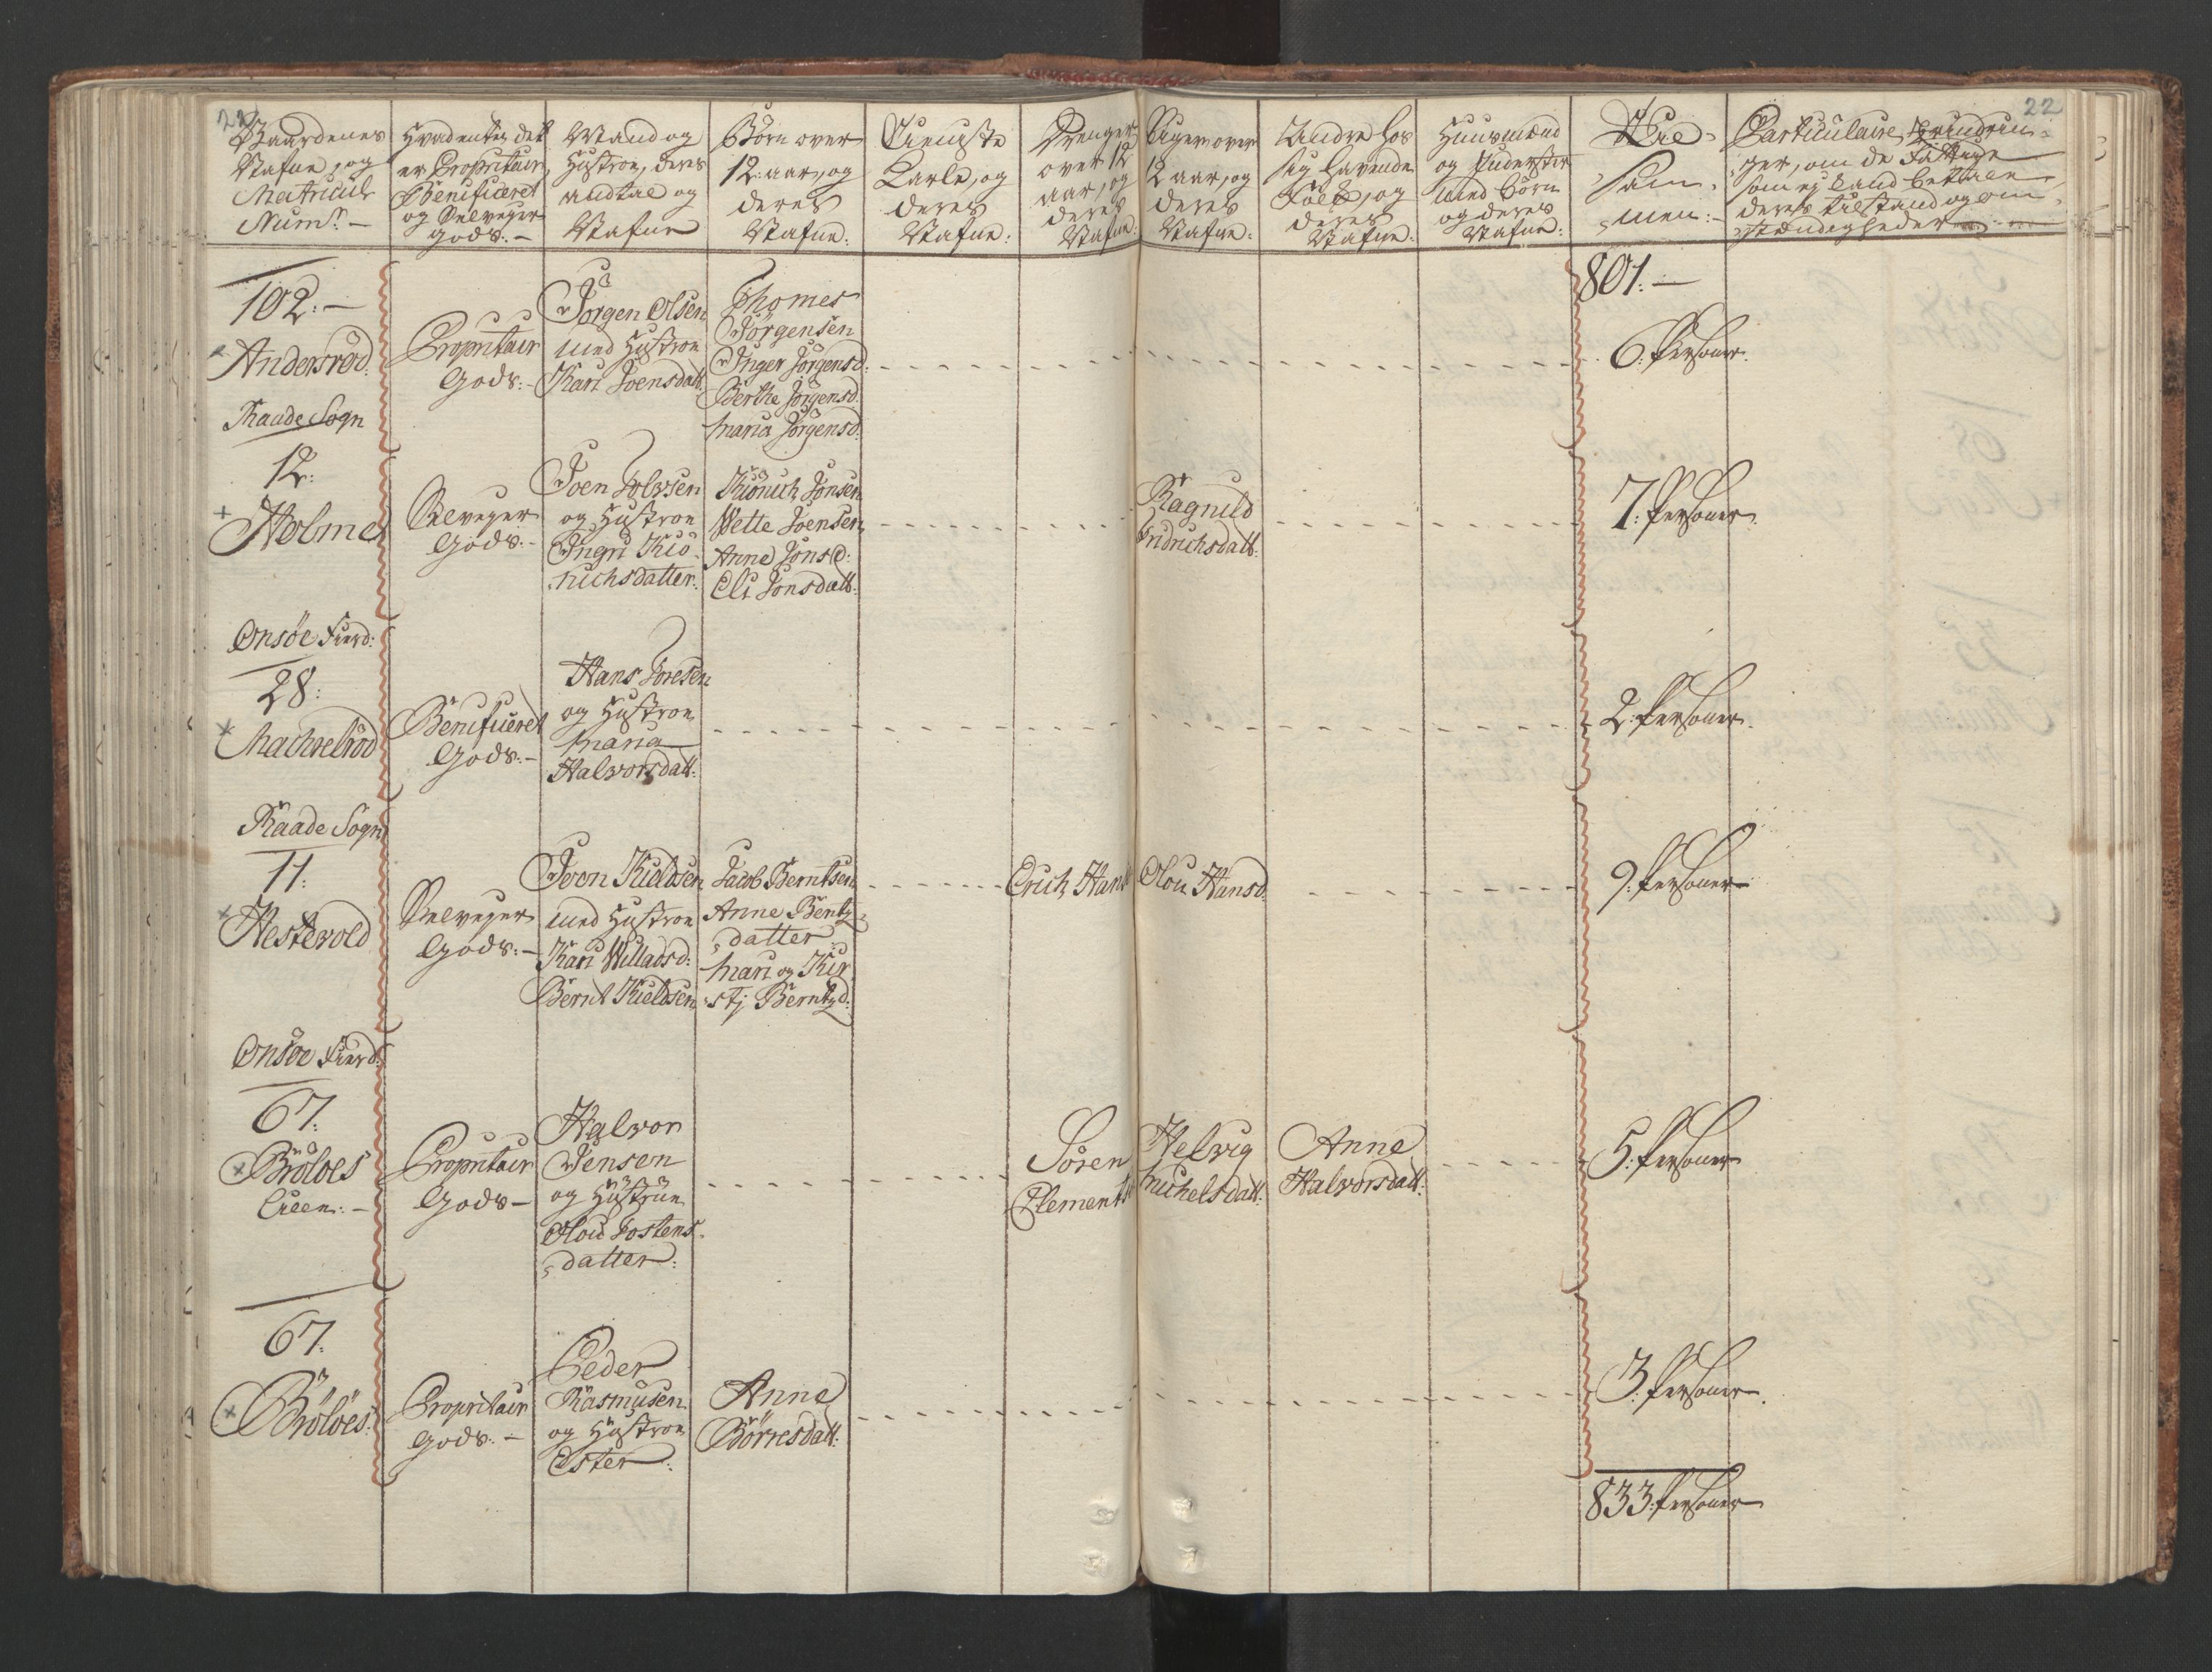 22
22
Gaardenes
Nafne, og
Matricul
Num.r -
Hvadenten det
er Propritair,
Benificeret
og Selveyer
gods. -
Mand og
Hustroe, deres
andtal og
Nafne
Børn over
12. aar, og
deres
Nafne:
Tieniste
Karle, og
deres
Nafne:
Drenger
over 12
aar, og
deres
Nafne:
Piger over
12 aar, og
deres
Nafne:
Andre hos
sig havende
Folk, og
deres
Nafne:
Huusmænd
og Inderster
med børn
og deres
Nafne:
Til-
sam-
men:-
Particulaire Erindrin-
ger, om de Fattige
som ej kand betale,
deres tilstand og om-
stændigheder
801:-
102:-
Andersrød.
Propritair
Gods:-
Jørgen Olsen
med Hustroe
Kari Joensdatt.
Thomes
Jørgensen
Inger Jørgensd.
Berthe Jørgensd.
Maria Jørgensd.
6: Personer.
Raade Sogn
12:
+ Holme
Selveyer
Gods:-
Joen Tolvsen
og Hustroe
Ingri Kiø-
nichsdatter.
Kiønich Jonsen
Wette Joensen
Anne Jonsd:
Eli Jonsdatt:
Ragnild
Fridrichsdatt:
7: Personer.
Onsøe Fierd:
28:
+ Machrelrød
Benificeret
Gods:-
Hans Toresen
og Hustroe
Maria
Halvorsdatt:
2: Personer.
Raade Sogn
11:
+ Hestevold
Selveyer
Gods:-
Joen Kieldsen
med Hustroe
Kari Willadsd:
Bernt Kieldsen
Jacob Berntsen
Anne Bentz-
datter
Mari og Kir-
stj Berntzd:
Erich Hans
Olou Hansd.
9: Personer
Onsøe Fierd:
67:
+ Brøloes
Eieen:-
Propritair
Gods-
Halvor
Jensen
og Hustrue
Olou Tostens-
datter:
Søren
Clements
Helvig
Michelsdatt:
Anne
Halvorsdatt:
5: Personer
67:
+ Brøløes:
Propritair
Gods:-
Peder
Rasmusen
og Hustroe
Ester:
Anne
Børresdatt:
3: Personer.
833: Personer